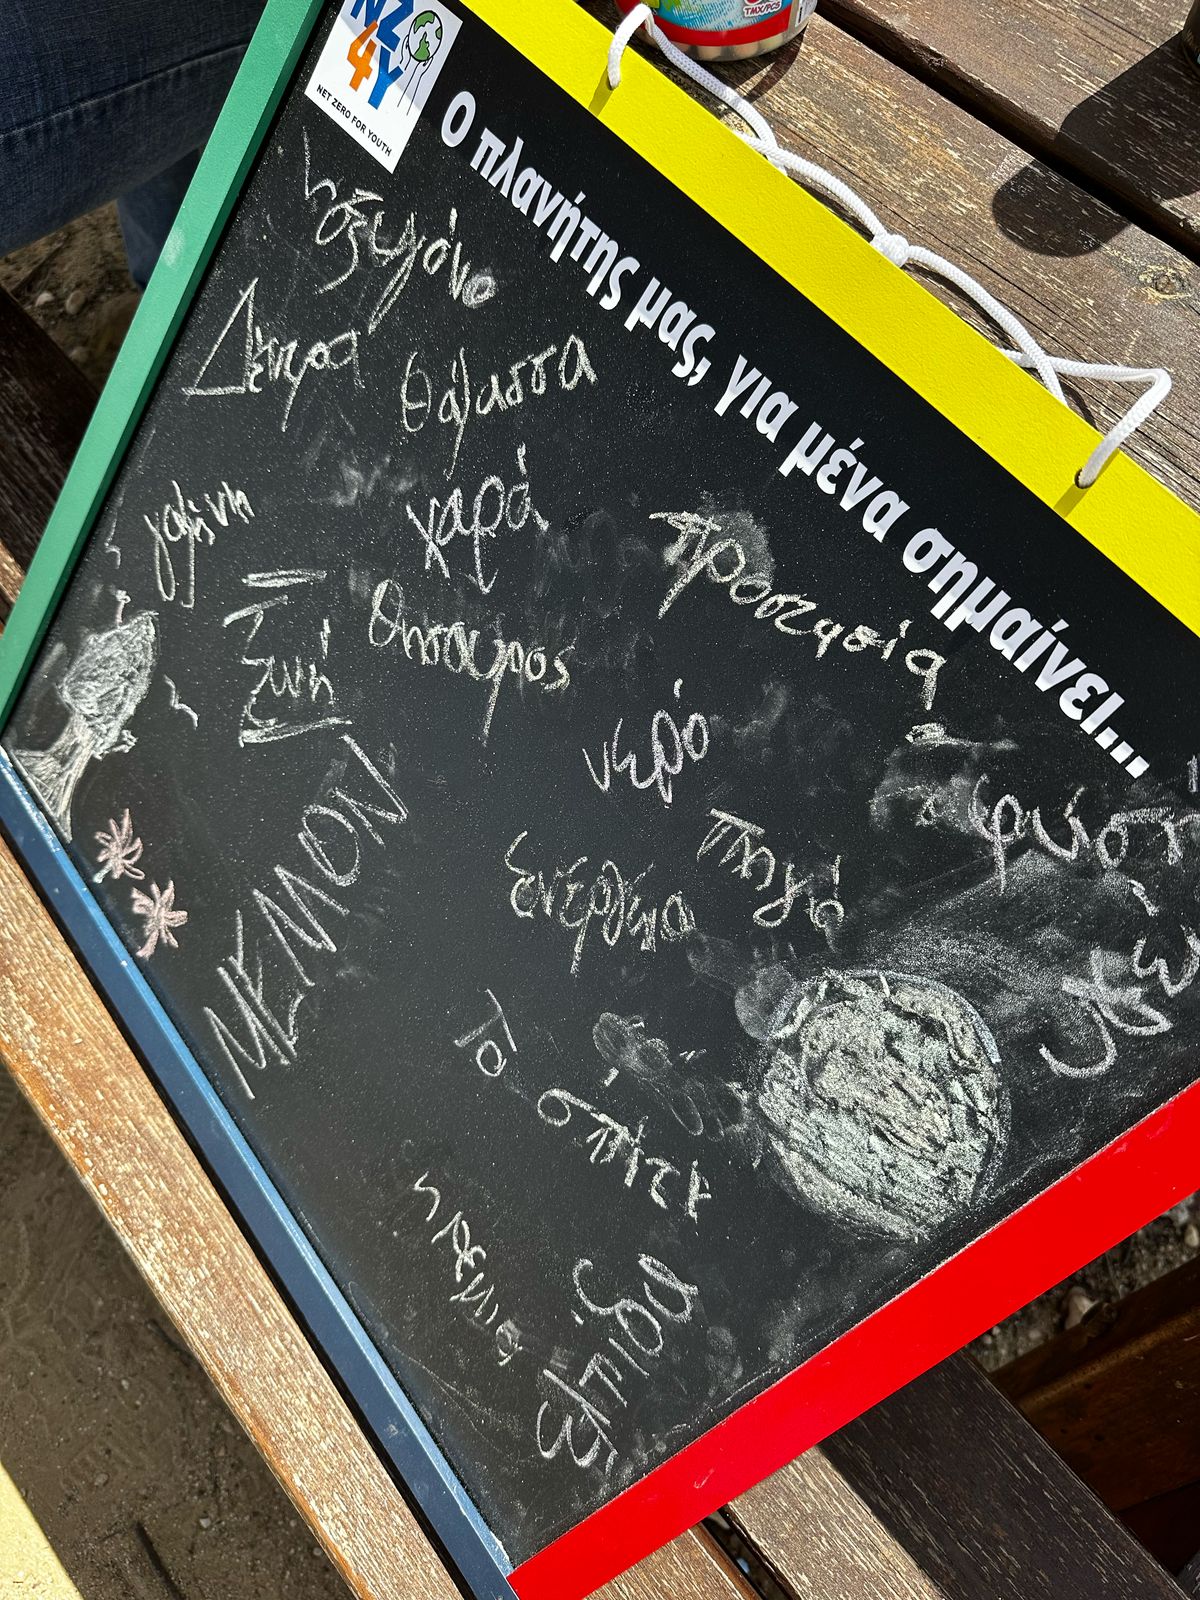 NZ
4Y
NET ZERO FOR YOUTH
TMX/PCS
Ο πλανήτης μας, για μένα σημαίνει...
Δέντρα
θάλασσα
γαλήνη
χαρά
προστασία
ζωή
θησαυρος
νερό
φύση
ΜΕΛΛΟΝ
πηγή
ενέργεια
Το σπίτι
ηρεμία